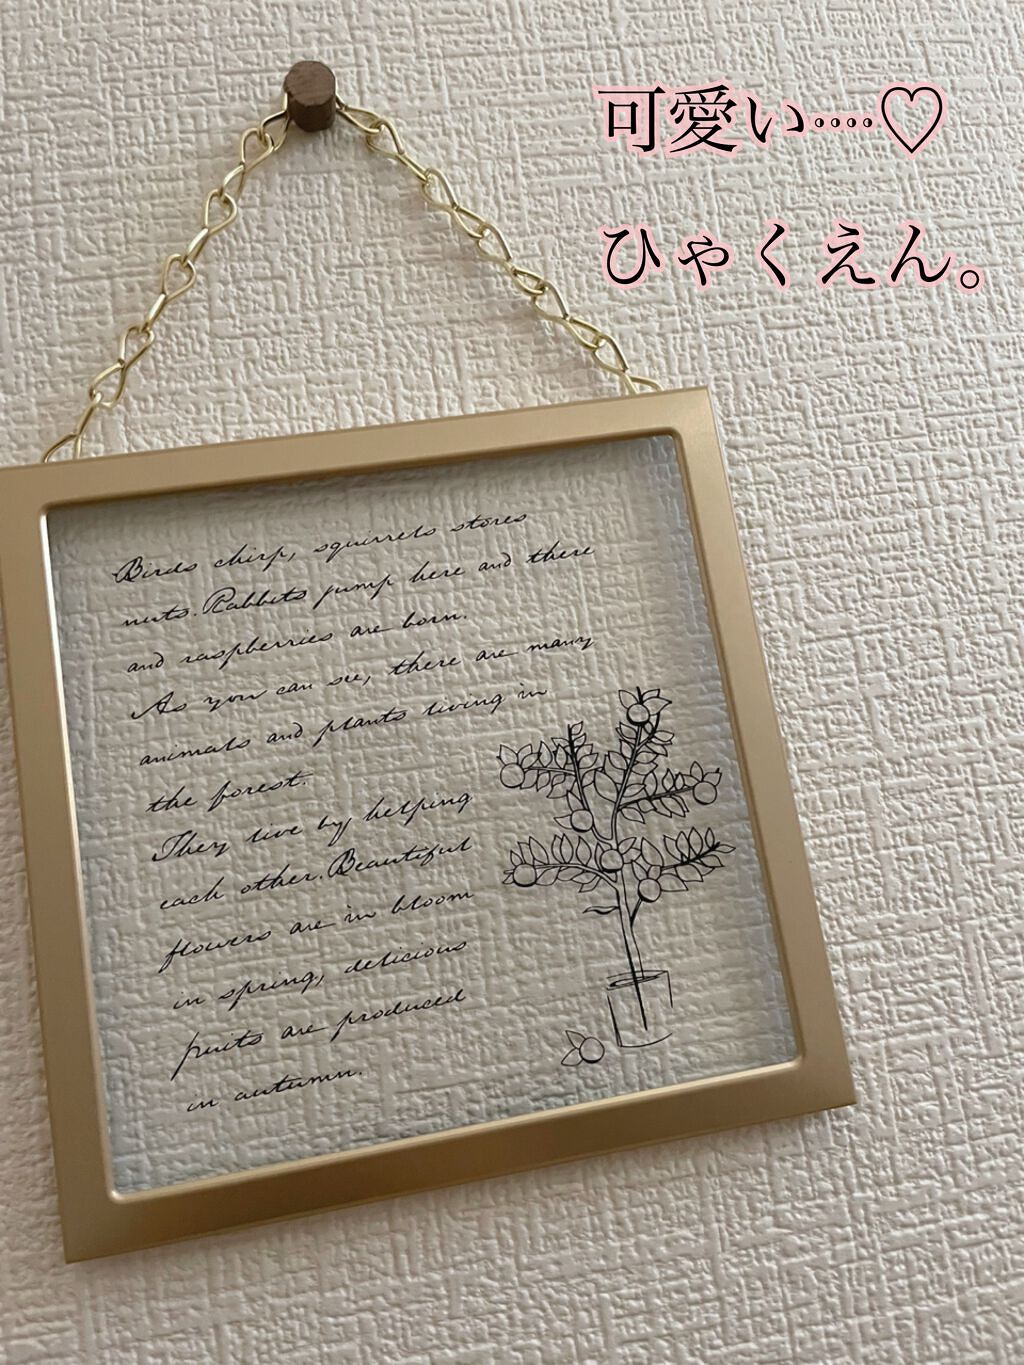 可愛い....♡
ひゃくえん。
Birds chirp, squirrels stores
nuts. Rabbits jump here and there
and raspberries are born.
As you can see, there are many
animals and plants living in
the forest.
They live by helping
each other. Beautiful
flowers are in bloom
in spring, delicious
fruits are produced
in autumn.